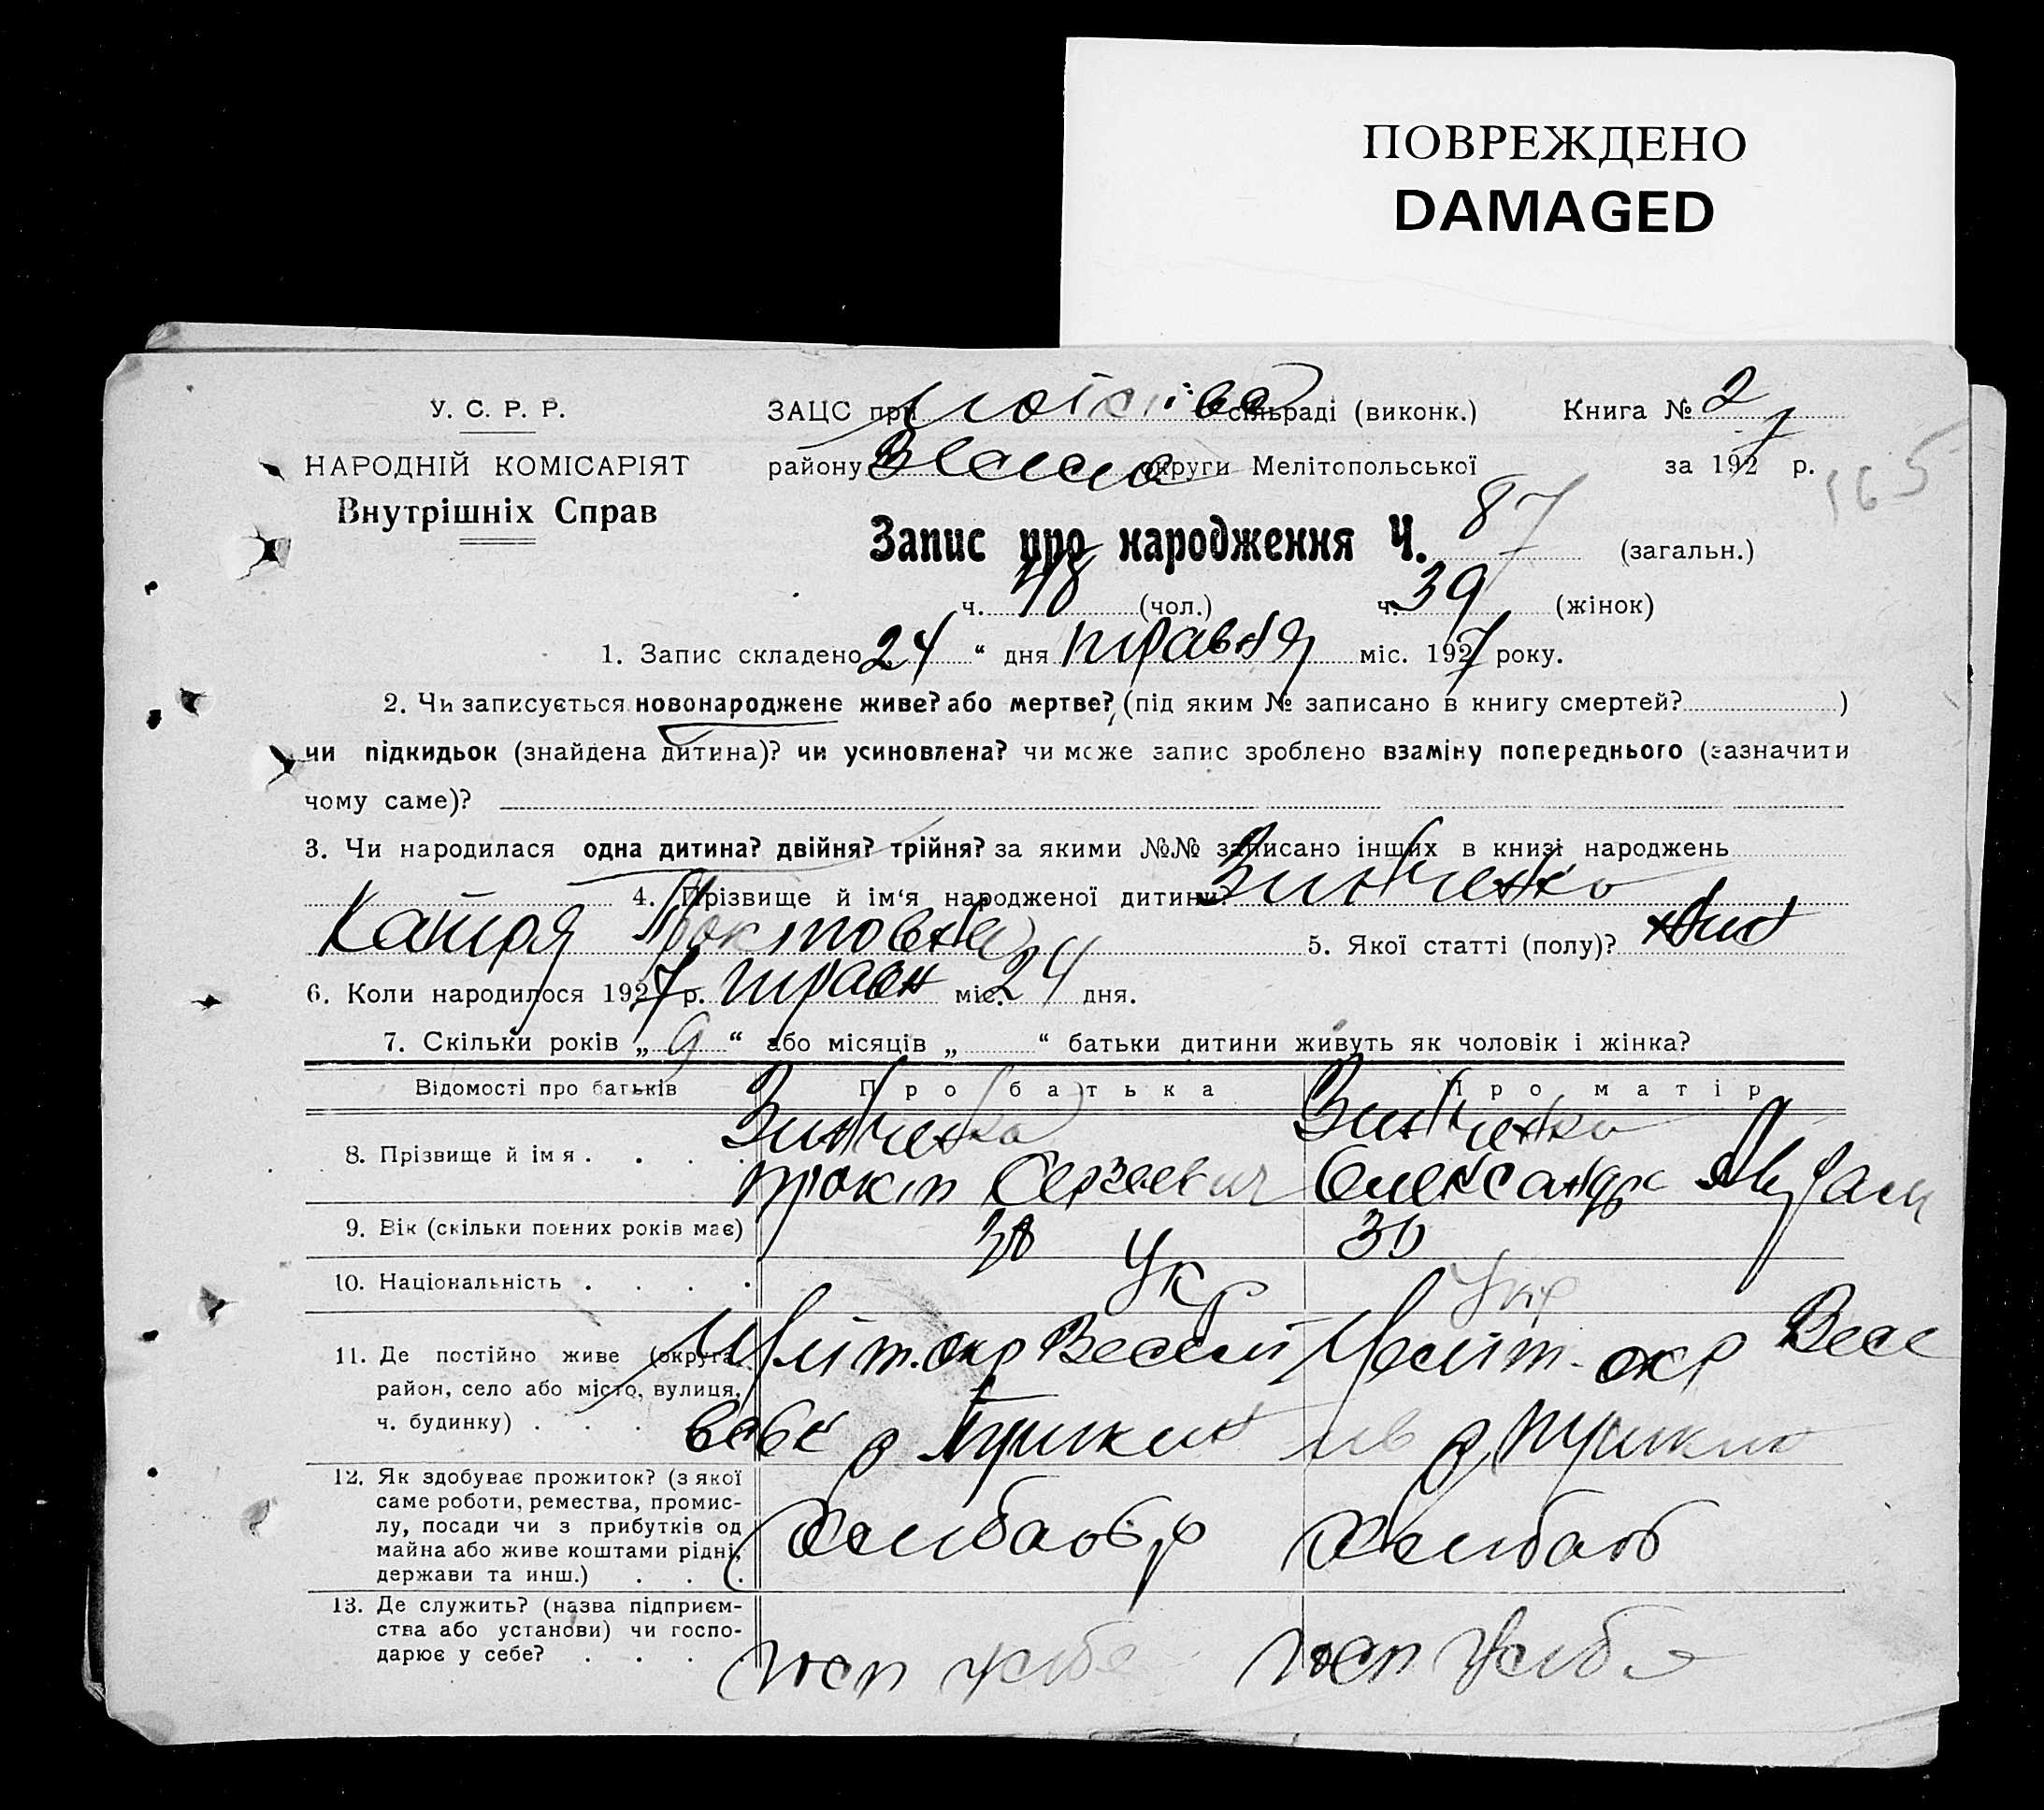 ПОВРЕЖДЕНО
DAMAGED
У. С. Р. Р.
НАРОДНІЙ КОМІСАРІЯТ
Внутрішніх Справ
ЗАЦС при сільраді (виконк.) Книга № 2
району округи Мелітопольської за 1927 р.
165
Запис про народження Ч. 87 (загальн.)
ч. 48 (чол.) ч. 39 (жінок)
1. Запис складено 24 “ дня травня міс. 1927 року.
2. Чи записується новонароджене живе? або мертве? (під яким № записано в книгу смертей? )
чи підкидьок (знайдена дитина)? чи усиновлена? чи може запис зроблено взаміну попереднього (зазначити
чому саме)?
3. Чи народилася одна дитина? двійня? трійня? за якими №№ записано інших в книзі народжень
4. Прізвище й ім‘я народженої дитини? Зинченко
Катря Прокіповна 5. Якої статті (полу)? жін
6. Коли народилося 1927 р. травн міс. 24 дня.
7. Скільки років „ 9 “ або місяців „ “ батьки дитини живуть як чоловік і жінка?
Відомості про батьків Про батька Про матір
8. Прізвище й імя . . . . Зинченко Зинченко
прокіп Сергеевич Олександра
9. Вік (скільки повних років має) 30
10. Національність . . . . Укр Укр
11. Де постійно живе (округа, район, село або місто, вулиця, ч. будинку) . . .
Меліт. окр Весели Меліт. окр Весе
р Пушкин р пушкин
12. Як здобуває прожиток? (з якої саме роботи, ремества, промислу, посади чи з прибутків од майна або живе коштами рідні, держави та инш.) . . .
Хлибаобр Хлибаоб
13. Де служить? (назва підприємства або установи) чи господарює у себе? . . . .
госп усибе госп усиби